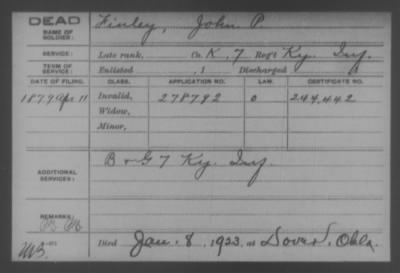 DEAD
NAME OF SOLDIER: Finley, John P.
SERVICE: Late rank, Co. K, 7 Reg't Ky. Inf.
TERM OF SERVICE: Enlisted , 1 Discharged
DATE OF FILING. CLASS. APPLICATION NO. LAW. CERTIFICATE NO.
1879 Apr 11 Invalid, 278792 244,442
Widow,
Minor,
ADDITIONAL SERVICES: B & G 7 Ky. Inf.
REMARKS:
Died Jan. 8, 1923, at Dover, Okla.